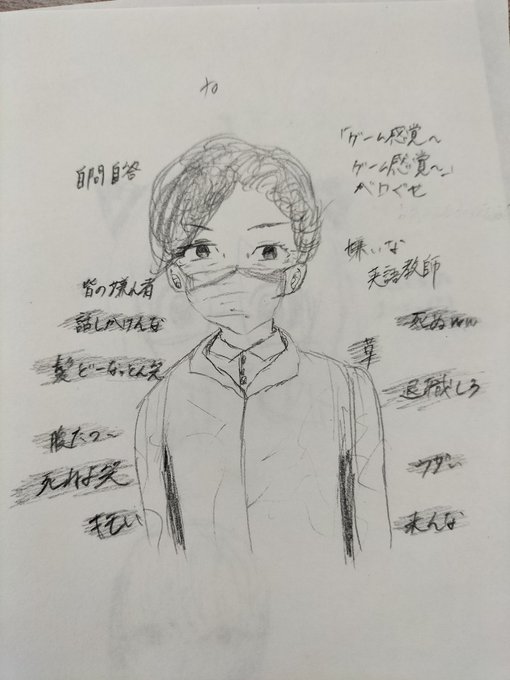 自問自答
「ゲーム感覚〜
ゲーム感覚〜」
口ぐせ
嫌いな
英語教師
皆の嫌われ者
話しかけんな
髪どーなっとん笑
腹たつ〜
死ねよ笑
キモい
死ぬww
草
退職しろ
ウザい
来んな